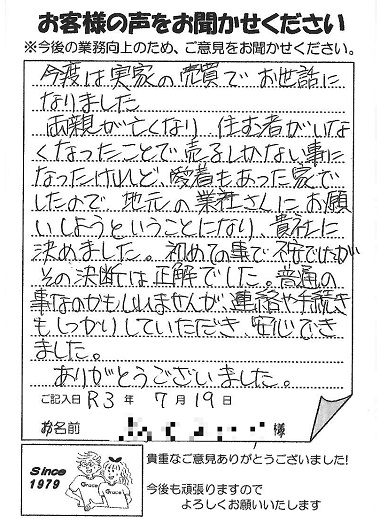 お客様の声をお聞かせください
※今後の業務向上のため、ご意見をお聞かせください。
今度は実家の売買でお世話に
なりました
両親が亡くなり 住む者がいな
くなったことで売るしかない事に
なったけれど、愛着もあった家で
したので 地元の業社さんにお願
いしようということになり、貴社に
決めました。初めての事で不安でしたが
その決断は正解でした。普通の
事なのかもしれませんが、連絡や手続き
もしっかりしていただき、安心でき
ました。
ありがとうございました。
ご記入日 R3 年 7 月 19 日
お名前 様
Since
1979
Grace
Grace
貴重なご意見ありがとうございました!
今後も頑張りますので
よろしくお願いいたします